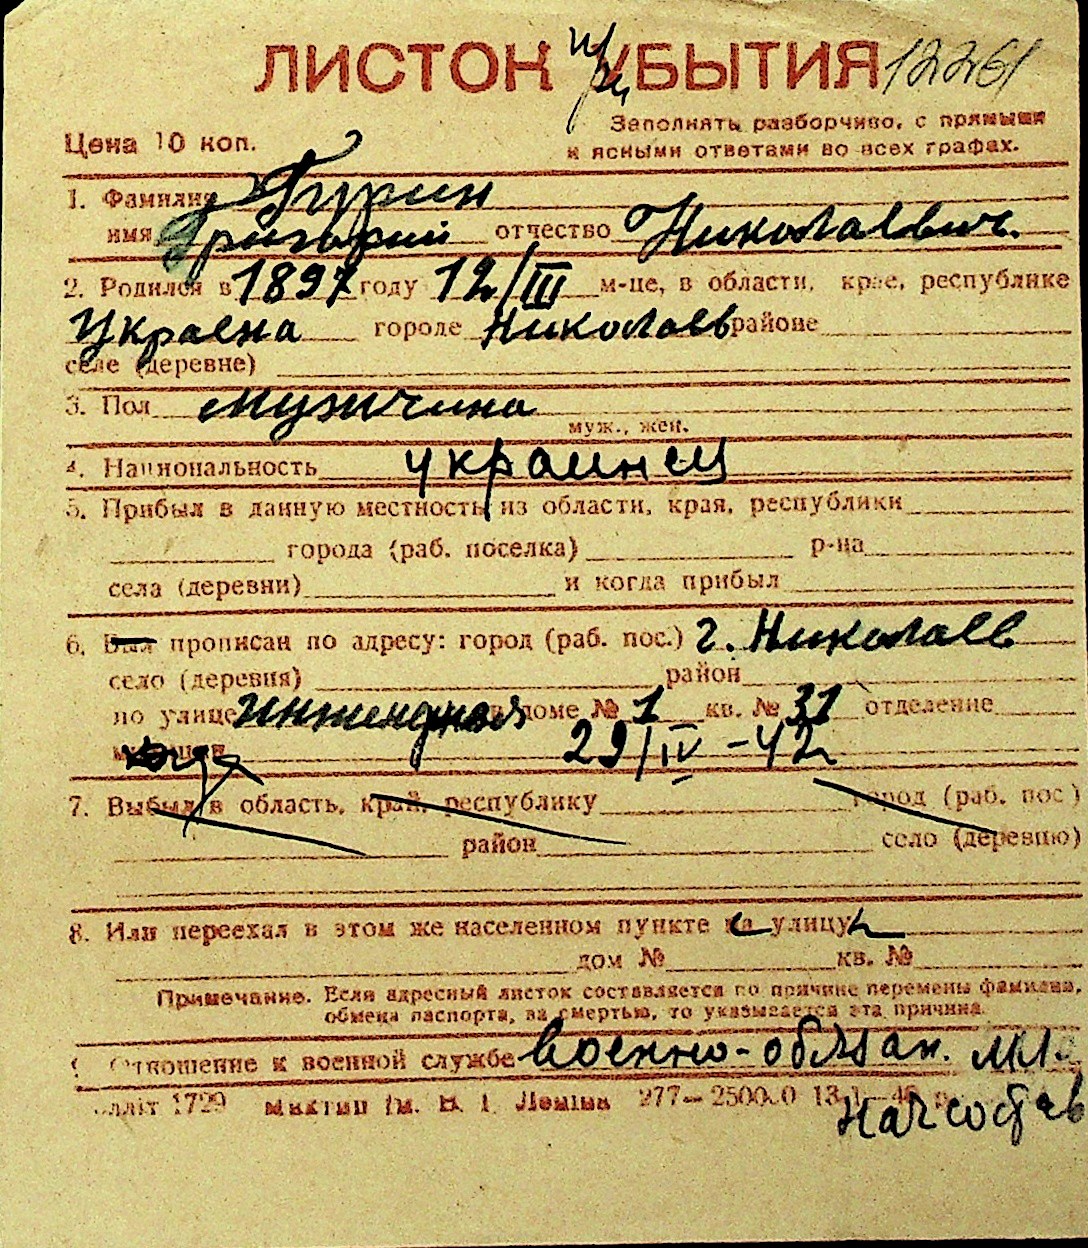 ЛИСТОК УБЫТИЯ 12261
при
Цена 10 коп.
Заполнять разборчиво, с прямыми
и ясными ответами во всех графах.
1. Фамилия Гурин
имя Григорий отчество Николаевич.
2. Родился в 1897 году 12/III м-це, в области, крае, республике
Украена городе Николаев районе
селе (деревне)
3. Пол мужчина
муж., жен.
4. Национальность украинец
5. Прибыл в данную местность из области, края, республики
города (раб. поселка) р-на
села (деревни) и когда прибыл
6. Был прописан по адресу: город (раб. пос.) г. Николаев
село (деревня) район
по улице в доме № 1 кв. № 31 отделение
29/IV-42
7. Выбыл в область, край, республику город (раб. пос)
район село (деревню)
8. Или переехал в этом же населенном пункте на улицу
дом № кв. №
Примечание. Если адресный листок составляется по причине перемены фамилии,
обмена паспорта, за смертью, то указывается эта причина
9. Отношение к военной службе военно-обязан. мл.
начсостав
1729 им. В. І. Леніна 277—